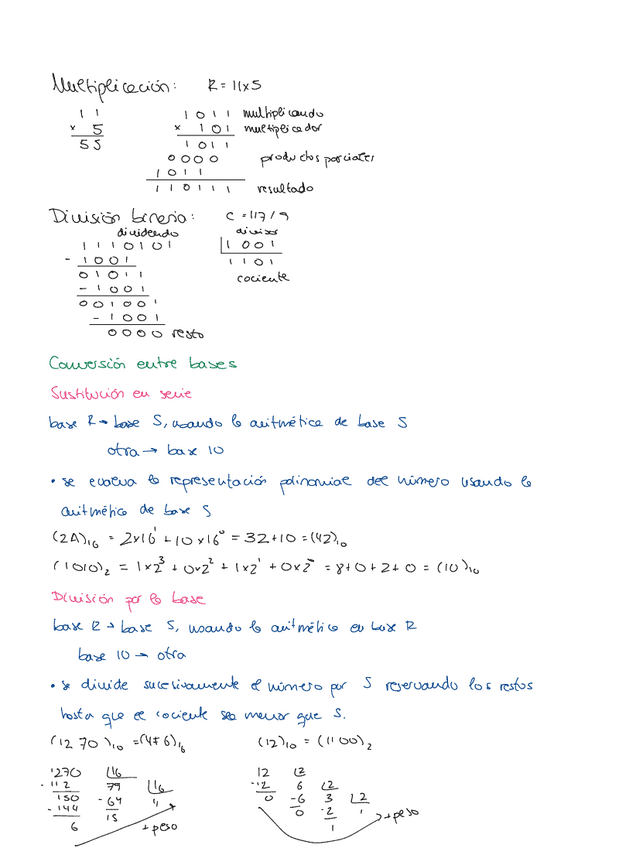 Multiplicación: R = 11x5
1 1
x 5
5 5
1 0 1 1 multiplicando
x 1 0 1 multiplicador
1 0 1 1
0 0 0 0 productos parciales
1 0 1 1
1 1 0 1 1 1 resultado
División binaria: C = 117/9
dividendo divisor
1 1 1 0 1 0 1 1 0 0 1
- 1 0 0 1 1 1 0 1
0 1 0 1 1 cociente
- 1 0 0 1
0 0 1 0 0 1
- 1 0 0 1
0 0 0 0 resto
Conversión entre bases
Sustitución en serie
base R → base S, usando la aritmética de base S
otra → base 10
• se evalua la representación polinomial del número usando la
aritmética de base S
(2A)₁₆ = 2x16¹ + 10x16⁰ = 32+10 = (42)₁₀
(1010)₂ = 1x2³ + 0x2² + 1x2¹ + 0x2⁰ = 8+0+2+0 = (10)₁₀
División por la base
base R → base S, usando la aritmética en base R
base 10 → otra
• se divide sucesivamente el número por S reservando los restos
hasta que el cociente sea menor que S.
(1270)₁₀ = (4F6)₁₆ (12)₁₀ = (1100)₂
1270 16 12 2
- 112 79 16 -12 6 2
150 - 64 4 0 -6 3 2
- 144 15 0 -2 1
6 + peso 1 + peso